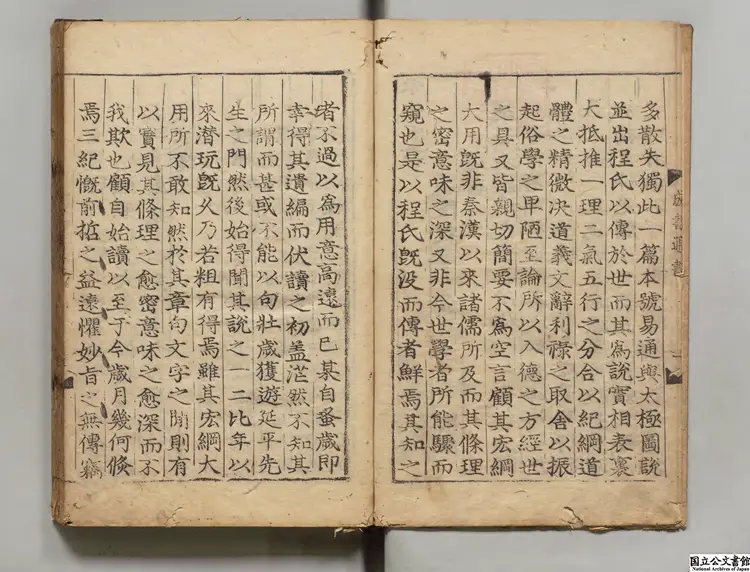 多散失獨此一篇本號易通與太極圖說
並出程氏以傳於世而其為說實相表裏
大抵推一理二氣五行之分合以紀綱道
體之精微決道義文辭利祿之取舍以振
起俗學之卑陋至論所以入德之方經世
之具又皆親切簡要不為空言顧其宏綱
大用既非秦漢以來諸儒所及而其條理
之密意味之深又非今世學者所能驟而
窺也是以程氏既沒而傳者鮮焉其知之
者不過以為用意高遠而已某自蚤歲即
幸得其遺編而伏讀之初盖茫然不知其
所謂而甚或不能以句壯歲獲遊延平先
生之門然後始得聞其說之一二比年以
來潜玩既久乃若粗有得焉雖其宏綱大
用所不敢知然於其章句文字之間則有
以實見其條理之愈密意味之愈深而不
我欺也顧自始讀以至于今歲月幾何倏
焉三紀慨前哲之益遠懼妙旨之無傳竊
通書
国立公文書館
National Archives of Japan